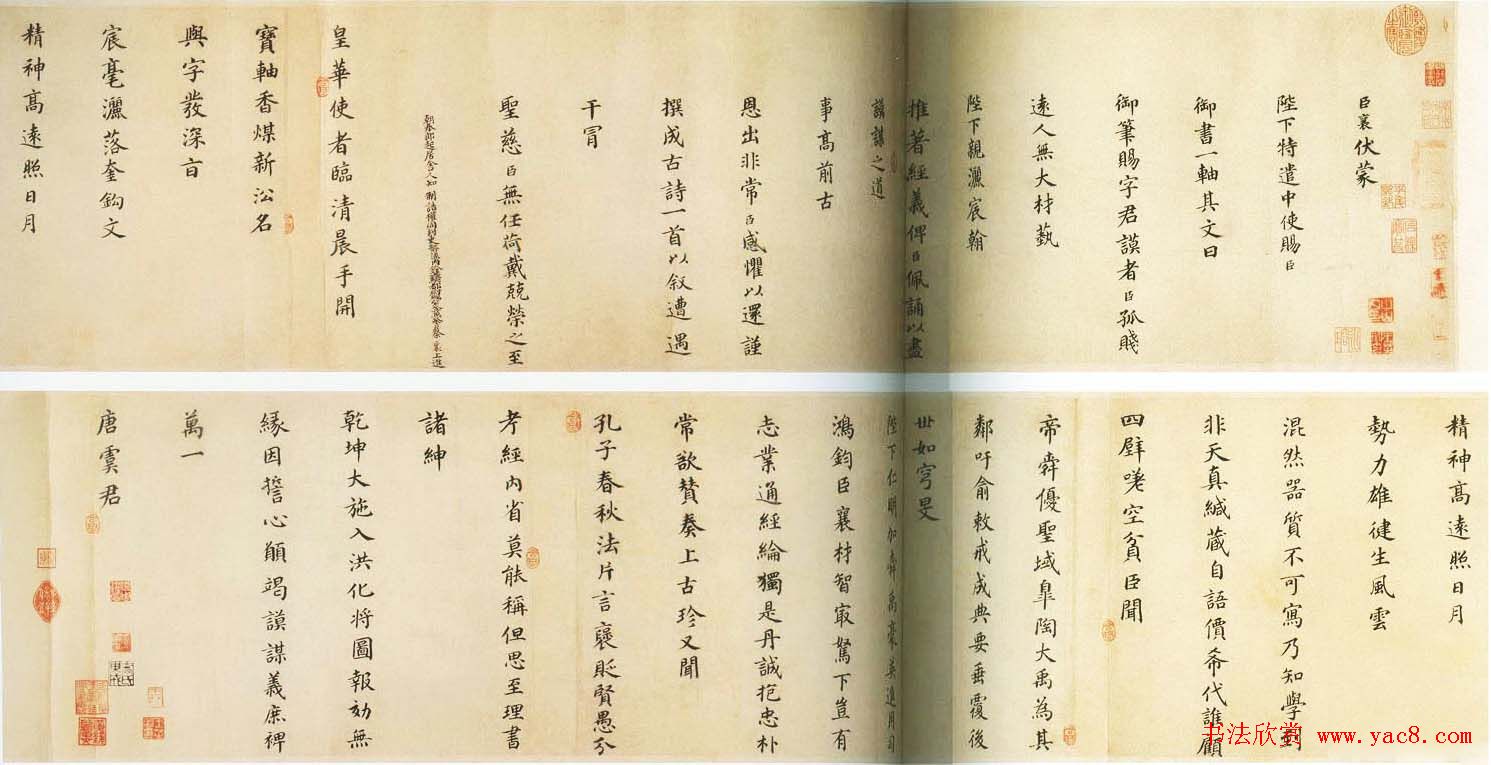 臣襄伏蒙
陛下特遣中使賜臣
御書一軸其文曰
御筆賜字君謨者臣孤賤
遠人無大材藝
陛下親灑宸翰
推著經義俾臣佩誦以盡
謨謀之道
事高前古
恩出非常臣感懼以還謹
撰成古詩一首以叙遭遇
干冒
聖慈臣無任荷戴兢榮之至
朝奉郎起居舍人知制誥權同判吏部流內銓騎都尉賜緋魚袋臣蔡襄上進
皇華使者臨清晨手開
寶軸香煤新沄名
與字發深旨
宸毫灑落奎鈎文
精神高遠照日月
精神高遠照日月
勢力雄健生風雲
混然器質不可寫乃知學到
非天真緘藏自語價希代誰顧
四壁嘆空貧臣聞
帝舜優聖域皐陶大禹為其
鄰吁俞敕戒成典要垂覆後
世如穹旻
陛下仁明加舜禹豪英進用司
鴻鈞臣襄材智最駑下豈有
志業通經綸獨是丹誠抱忠朴
常欲賛奏上古珍又聞
孔子春秋法片言襃貶賢愚分
考經內省莫能稱但思至理書
諸紳
乾坤大施入洪化將圖報効無
緣因誓心願竭謨謀義庶裨
萬一
唐虞君
书法欣赏 www.yac8.com